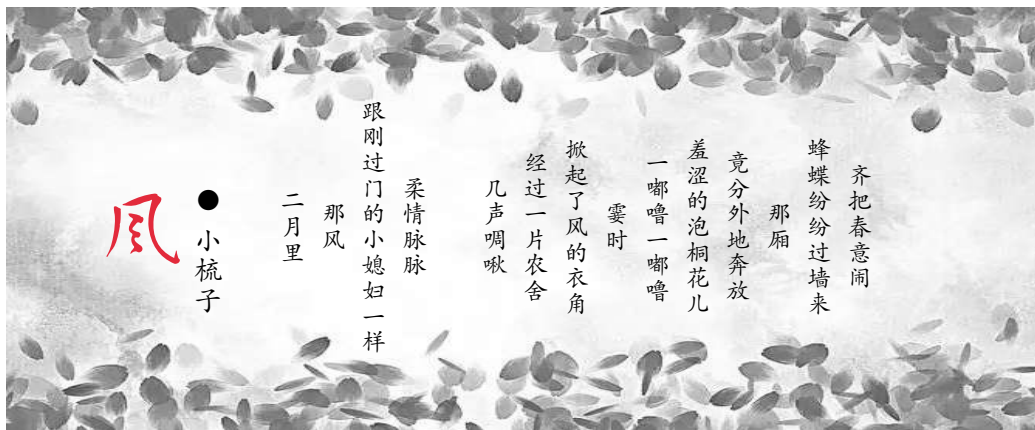 风
●小梳子
二月里
那风
跟刚过门的小媳妇一样
柔情脉脉
几声啁啾
经过一片农舍
掀起了风的衣角
霎时
一嘟噜一嘟噜
羞涩的泡桐花儿
竟分外地奔放
那厢
蜂蝶纷纷过墙来
齐把春意闹